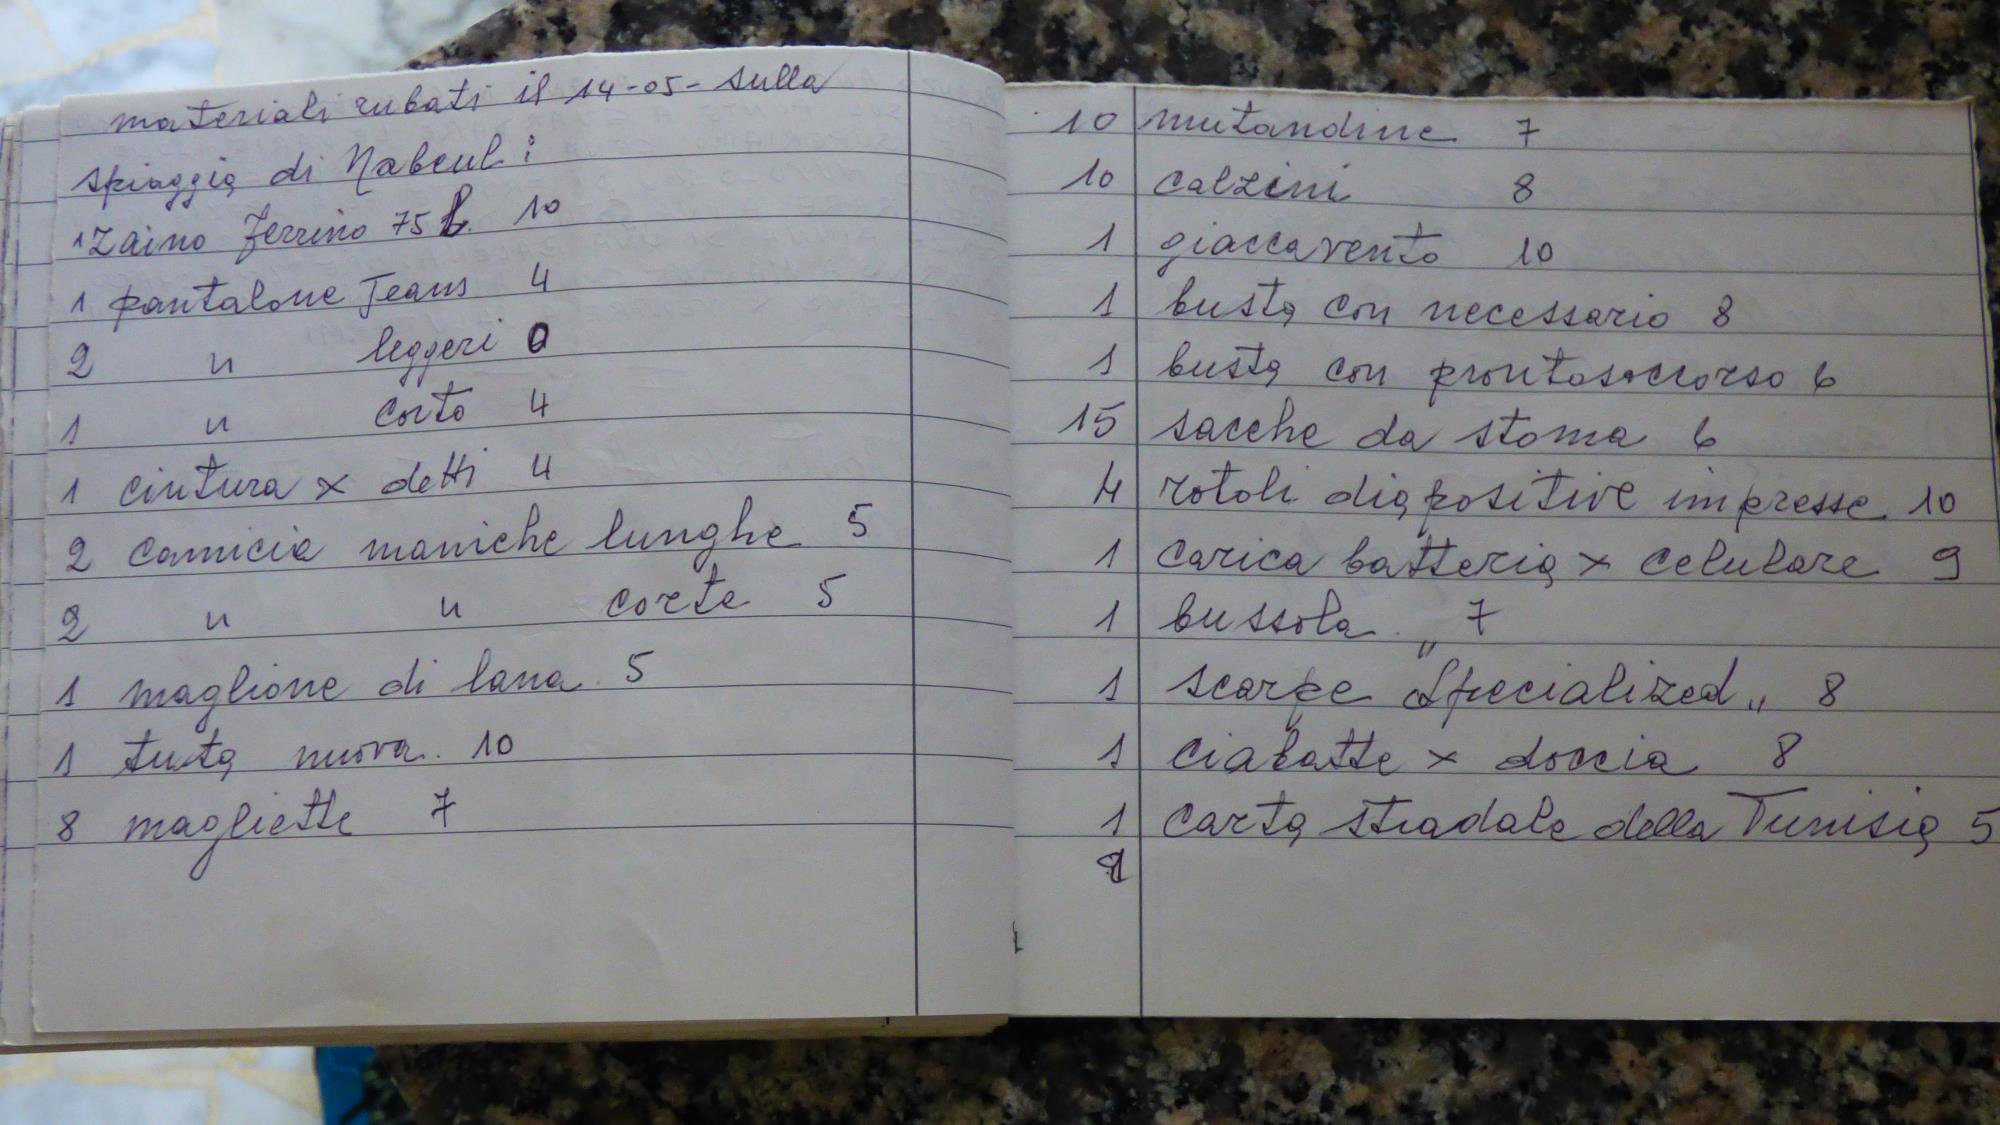 materiali rubati il 14-05- sulla
spiaggia di Nabeul:
1 zaino Ferrino 75 l. 10
1 pantalone Jeans 4
2 " leggeri 0
1 " corto 4
1 cintura x detti 4
2 camicie maniche lunghe 5
2 " " corte 5
1 maglione di lana. 5
1 tuta nuova. 10
8 magliette 7
10 mutandine 7
10 calzini 8
1 giaccavento 10
1 busta con necessario 8
1 busta con prontosoccorso 6
15 sacche da stoma 6
4 rotoli diapositive impresse 10
1 carica batteria x celulare 9
1 bussola 7
1 scarpe "Specialized" 8
1 ciabatte x doccia 8
1 carta stradale della Tunisia 5